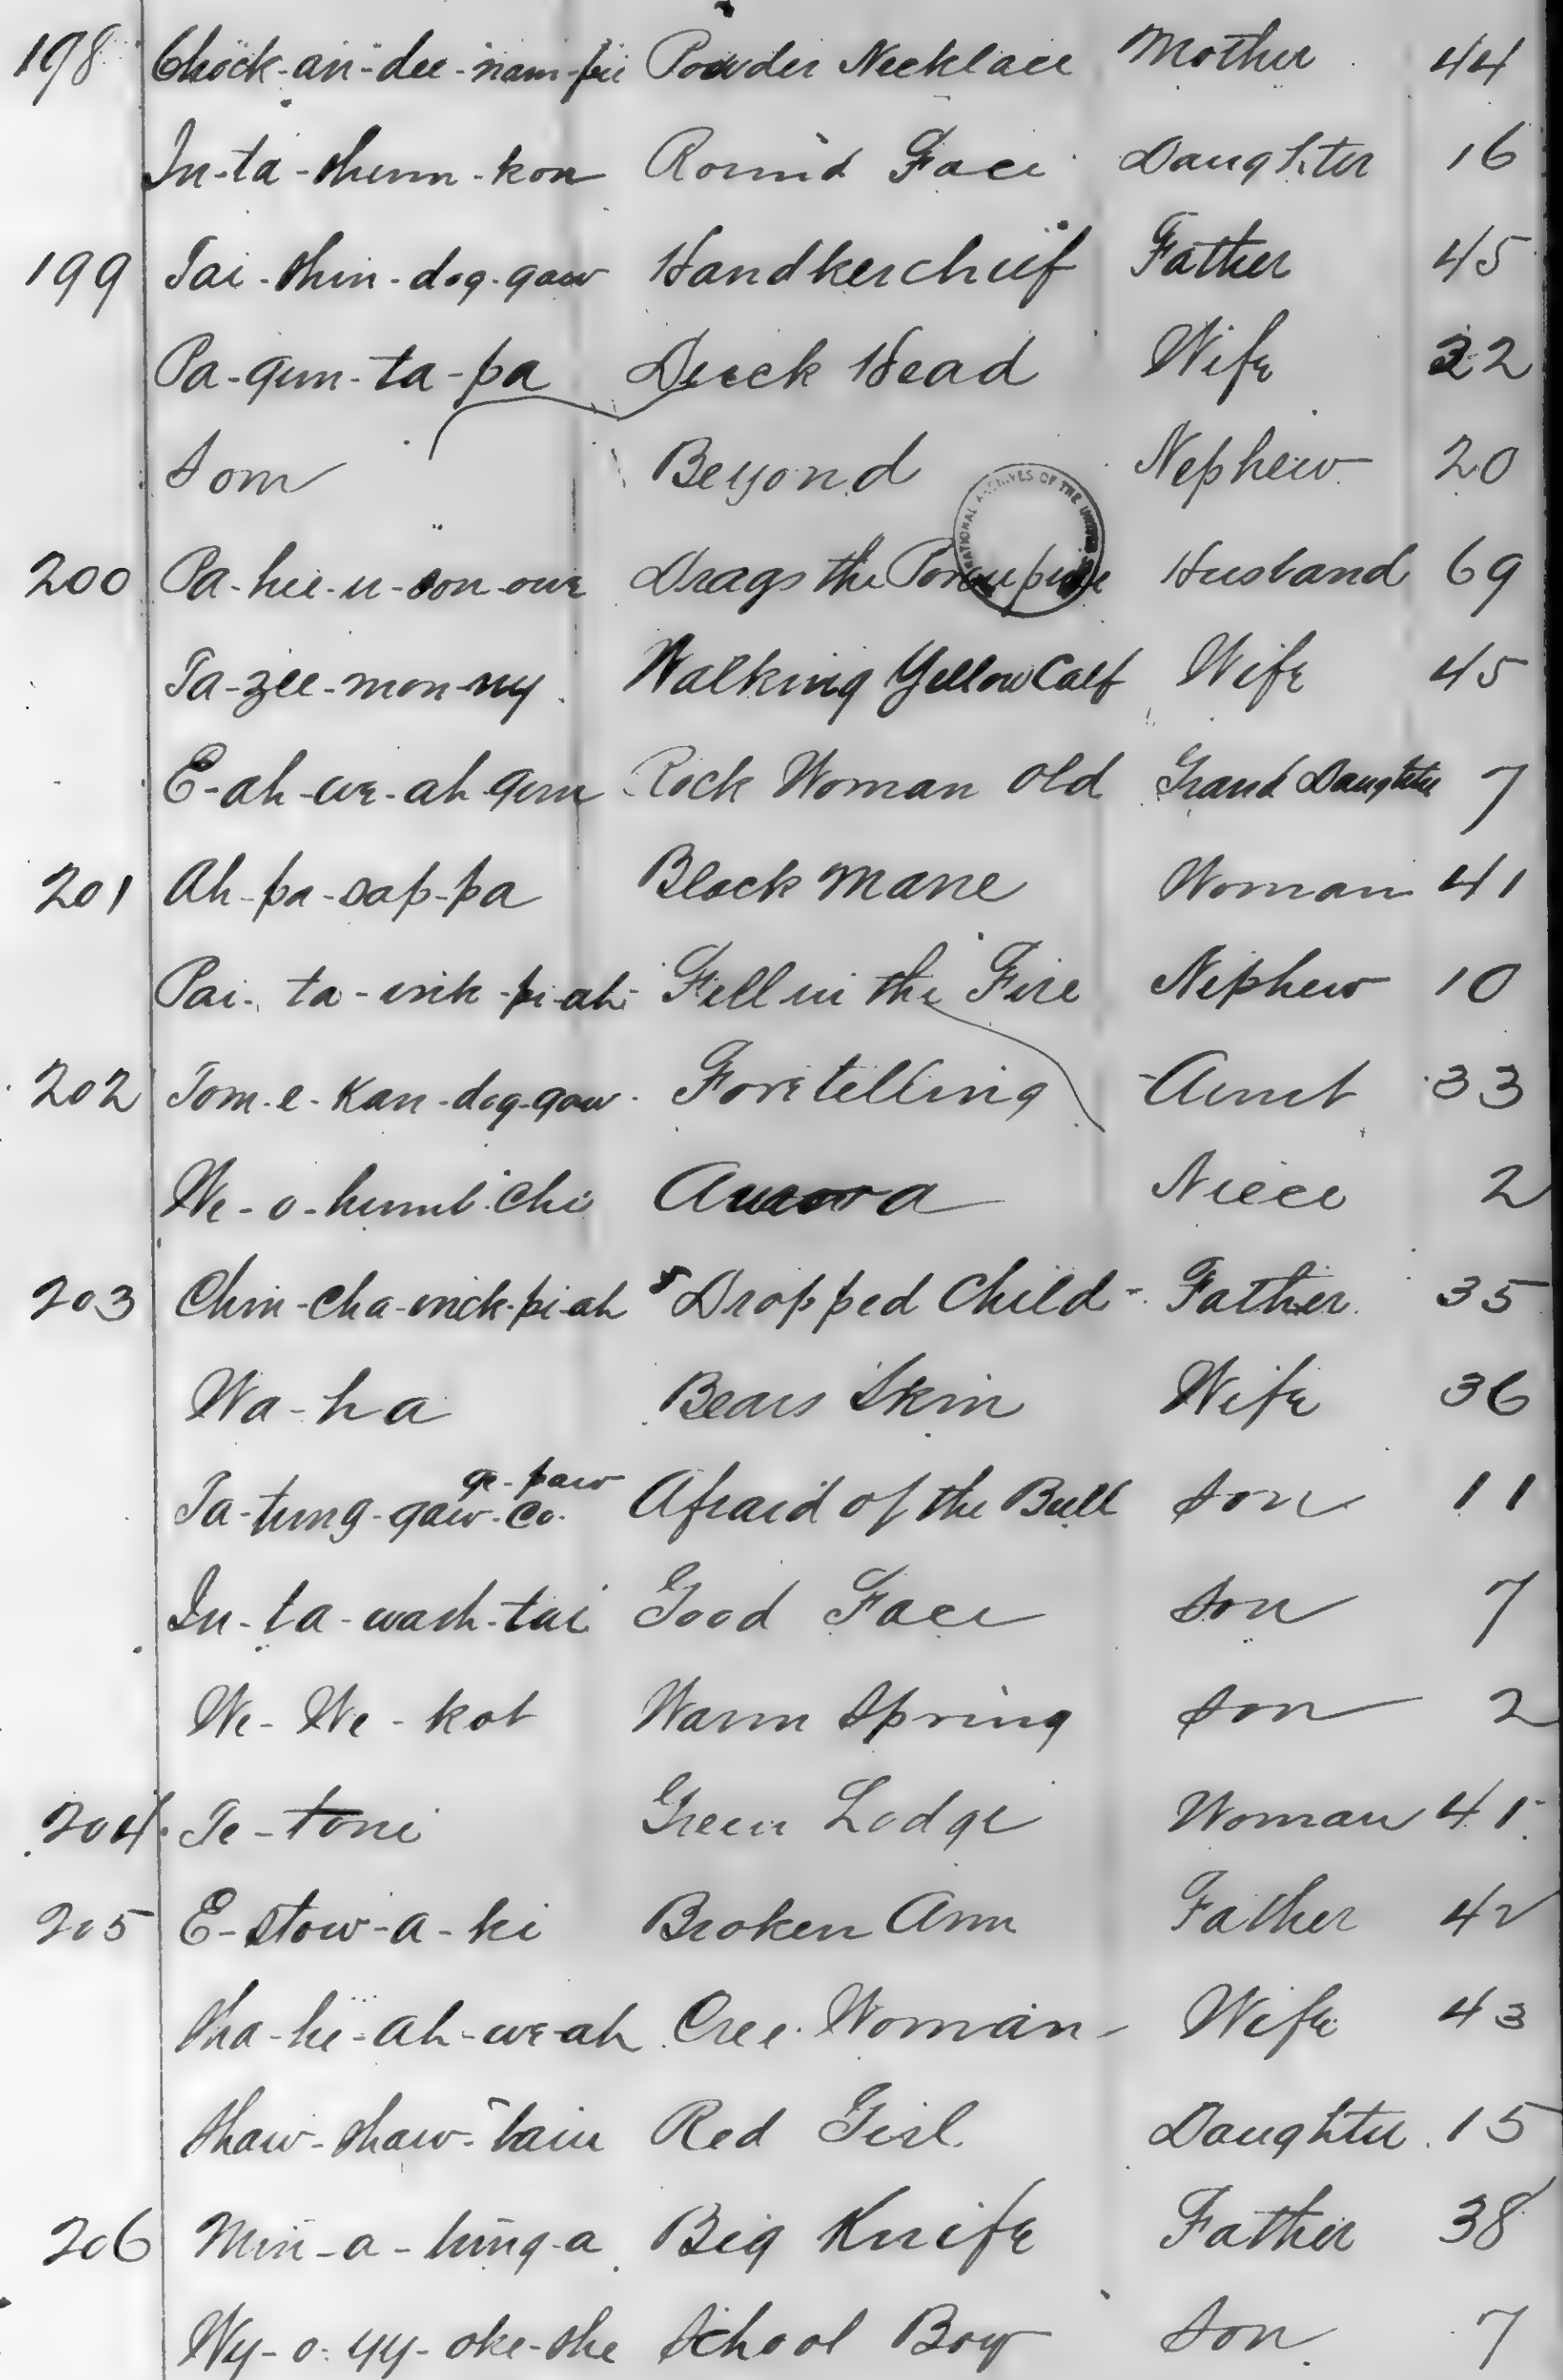 198 Chock-an-dee-nam-pu Powder Necklace Mother 44
In-ta-shunn-kon Round Face Daughter 16
199 Tai-shin-dog-gaw Handkerchief Father 45
Pa-gun-ta-pa Duck Head Wife 22
Tom Beyond Nephew 20
200 Pa-hee-u-son-owe Drags the Porcupine Husband 69
NATIONAL ARCHIVES OF THE UNITED
Ta-zee-mon-ny Walking Yellow Calf Wife 45
E-ah-we-ah-gun Rock Woman Old Grand Daughter 7
201 Ah-pa-sap-pa Black Mane Woman 41
Pai-ta-inh-pi-ah Fell in the Fire Nephew 10
202 Tom-e-Kan-dog-gaw Foretelling Aunt 33
We-o-humb-Chi Aurora Niece 2
203 Chin-Cha-inick-pi-ah Dropped Child Father 35
Wa-ha Bears Skin Wife 36
Ta-tung-gaw-Co-ge-paw Afraid of the Bull Son 11
In-ta-wash-tai Good Face Son 7
We-We-kot Warm Spring Son 2
204 Te-toni Green Lodge Woman 41
205 E-stow-a-ki Broken Arm Father 42
Sha-hi-ah-we-ah Cree Woman Wife 43
Shaw-shaw-bain Red Girl Daughter 15
206 Min-a-tung-a Big Knife Father 38
Wy-o-yy-oke-she School Boy Son 7